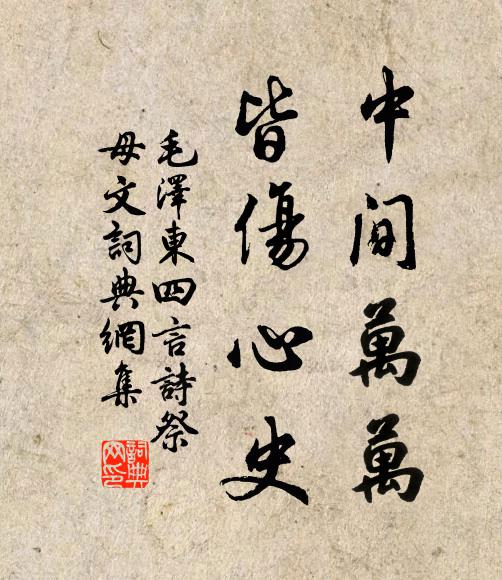 中间萬萬
皆傷心史
毛澤東四言詩祭
母文詞典網集
詞典
网印